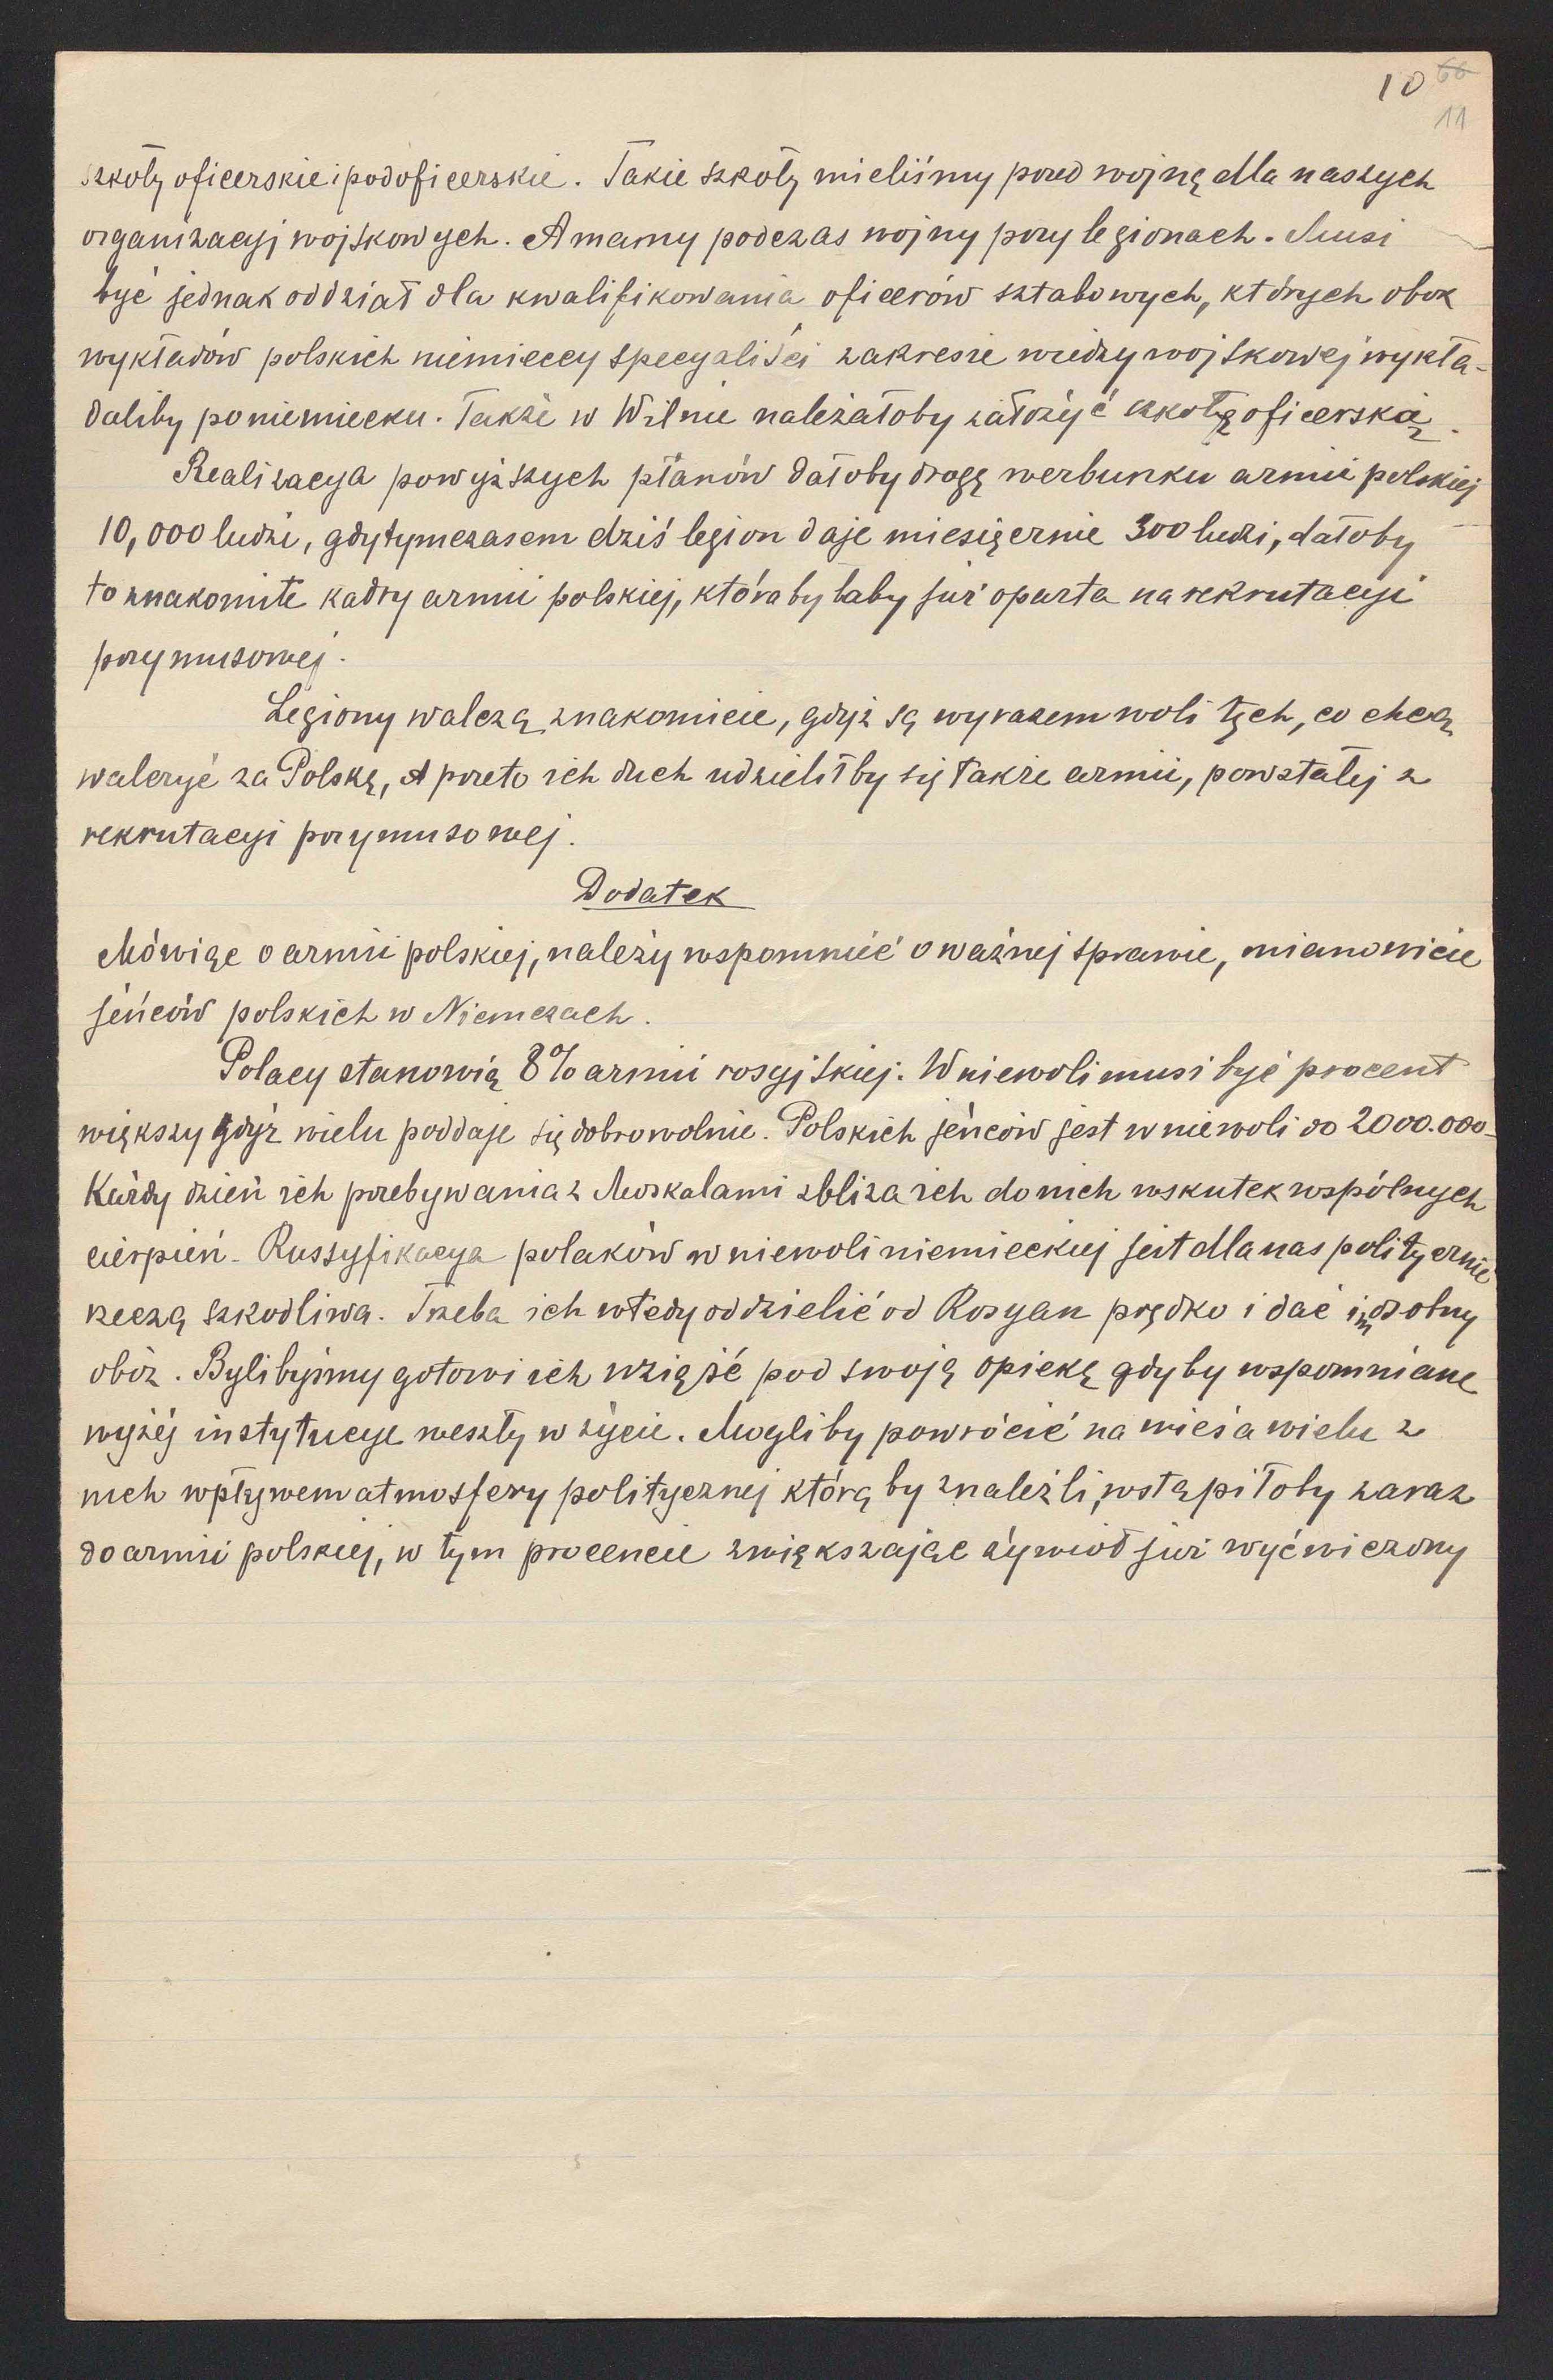 10 66
11
szkoły oficerskie i podoficerskie. Takie szkoły mieliśmy przed wojną dla naszych
organizacyj wojskowych. A mamy podczas wojny przy legionach. Musi
być jednak oddział dla kwalifikowania oficerów sztabowych, których obok
wykładów polskich niemieccy specyaliści zakresie wiedzy wojskowej wykła-
daliby po niemiecku. Także w Wilnie należałoby założyć szkołę oficerską.
Realizacya powyższych planów dałoby drogę werbunku armii polskiej
10,000 ludzi, gdy tymczasem dziś legion daje miesięcznie 300 ludzi, dałoby
to znakomite kadry armii polskiej, która byłaby już oparta na rekrutacyi
przymusowej.
Legiony walczą znakomicie, gdyż są wyrazem woli tych, co chcą
walczyć za Polskę, A przeto ich duch udzieliłby się także armii, powstałej z
rekrutacyi przymusowej.
Dodatek
Mówiąc o armii polskiej, należy wspomnieć o ważnej sprawie, mianowicie
jeńców polskich w Niemczach.
Polacy stanowią 8% armii rosyjskiej. W niewoli musi być procent
większy gdyż wielu poddaje się dobrowolnie. Polskich jeńców jest w niewoli do 2000.000
Każdy dzień ich przebywania z Moskalami zbliża ich do nich wskutek wspólnych
cierpień. Russyfikacya polaków w niewoli niemieckiej jest dla nas politycznie
rzeczą szkodliwa. Trzeba ich wtedy oddzielić od Rosyan prędko i dać im osobny
obóz. Bylibyśmy gotowi ich wziąść pod swoją opiekę gdyby wspomniane
wyżej instytucye weszły w życie. Mogliby powrócić na wieś a wielu z
nich wpływem atmosfery politycznej którą by znaleźli, wstąpiłoby zaraz
do armii polskiej, w tym procencie zwiększając żywioł już wyćwiczony